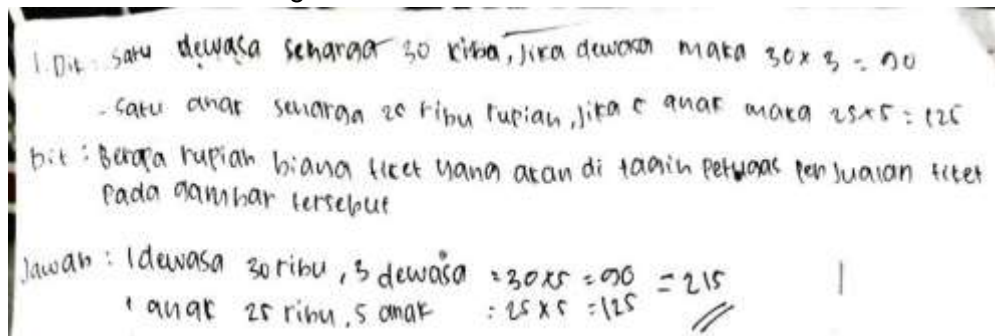 1. Dit : satu dewasa seharga 30 ribu, jika dewasa maka 30 x 3 = 90
- satu anak seharga 25 ribu rupiah, jika 5 anak maka 25x5 = 125
Dit : Berapa rupiah biaya ticet yang akan di tagih petugas penjualan titet
Pada gambar tersebut
Jawab : 1 dewasa 30 ribu, 3 dewasa = 30x5 = 90 = 215
1 anak 25 ribu, 5 anak : 25 x 5 = 125